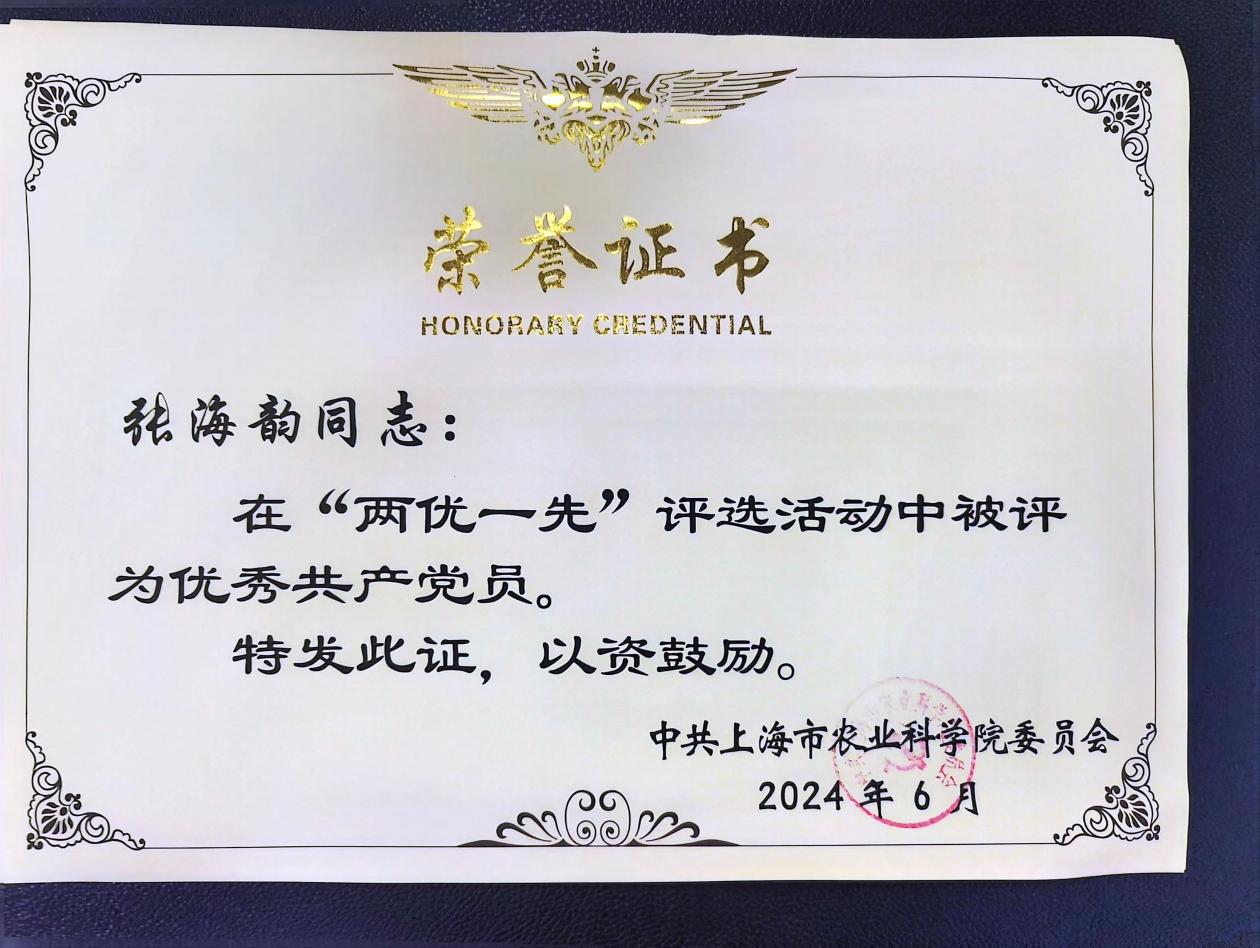 荣誉证书
HONORARY CREDENTIAL
张海韵同志：
在“两优一先”评选活动中被评
为优秀共产党员。
特发此证，以资鼓励。
中共上海市农业科学院委员会
2024年6月